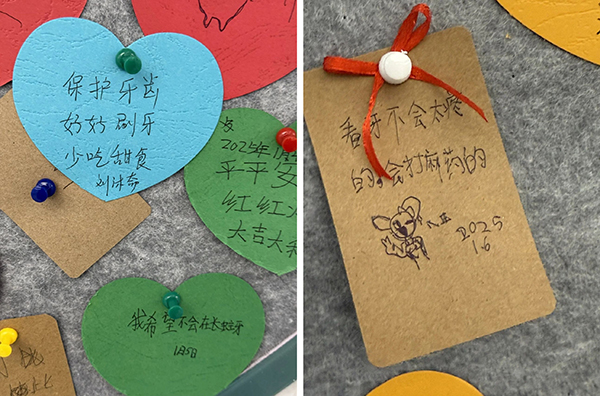 保护牙齿
好好刷牙
少吃甜食
2025年
平平安
红红火
大吉大利
我希望不会在长蛀牙
1月5日
看牙不会太疼
的,会打麻药的
2025
1.6